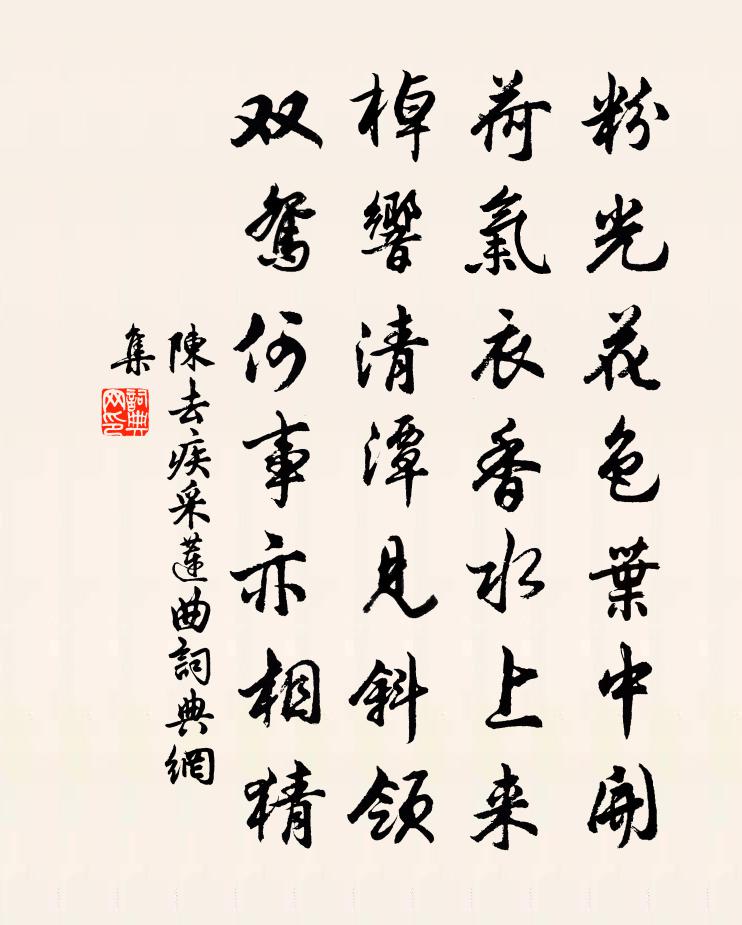 粉光花色葉中開
荷氣衣香水上来
棹響清潭見斜領
双鴛何事亦相猜
陳去疾采蓮曲詞典網
集
詞典
网印